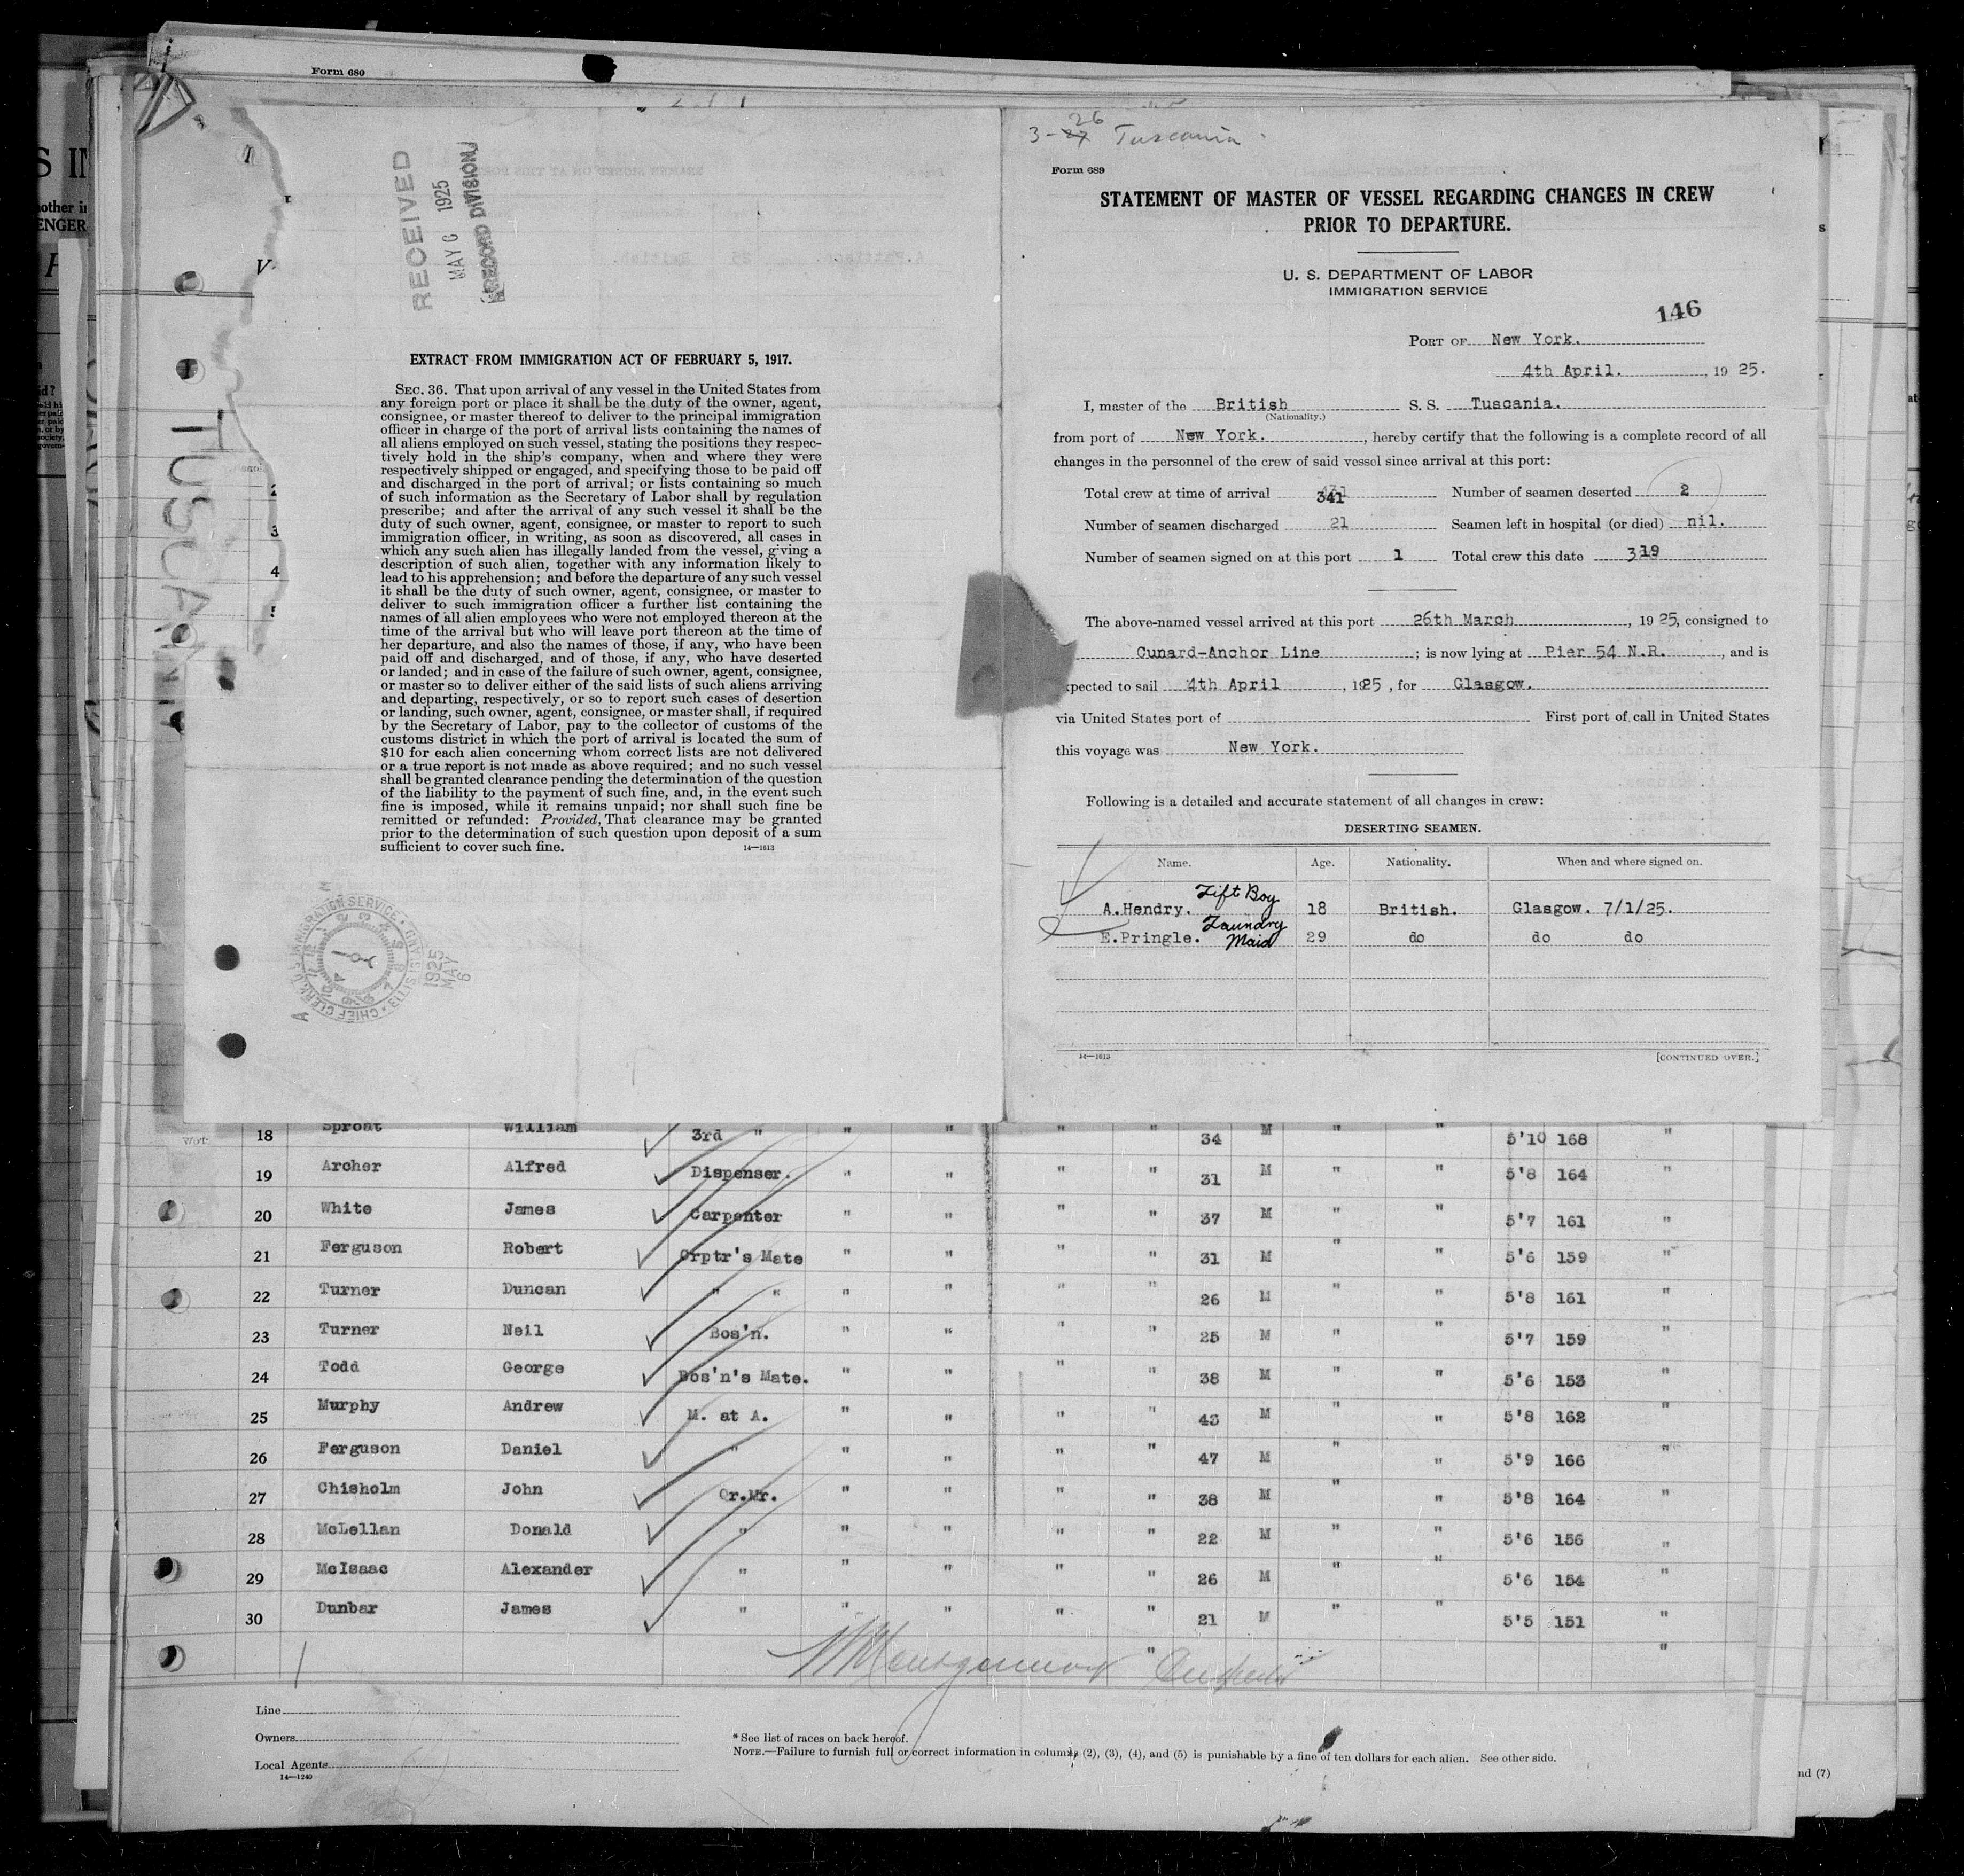 Form 680
RECEIVED
MAY 6 1925
RECORD DIVISION
TUSCANIA
EXTRACT FROM IMMIGRATION ACT OF FEBRUARY 5, 1917.
SEC. 36. That upon arrival of any vessel in the United States from
any foreign port or place it shall be the duty of the owner, agent,
consignee, or master thereof to deliver to the principal immigration
officer in charge of the port of arrival lists containing the names of
all aliens employed on such vessel, stating the positions they respec-
tively hold in the ship's company, when and where they were
respectively shipped or engaged, and specifying those to be paid off
and discharged in the port of arrival; or lists containing so much
of such information as the Secretary of Labor shall by regulation
prescribe; and after the arrival of any such vessel it shall be the
duty of such owner, agent, consignee, or master to report to such
immigration officer, in writing, as soon as discovered, all cases in
which any such alien has illegally landed from the vessel, giving a
description of such alien, together with any information likely to
lead to his apprehension; and before the departure of any such vessel
it shall be the duty of such owner, agent, consignee, or master to
deliver to such immigration officer a further list containing the
names of all alien employees who were not employed thereon at the
time of the arrival but who will leave port thereon at the time of
her departure, and also the names of those, if any, who have been
paid off and discharged, and of those, if any, who have deserted
or landed; and in case of the failure of such owner, agent, consignee,
or master so to deliver either of the said lists of such aliens arriving
and departing, respectively, or so to report such cases of desertion
or landing, such owner, agent, consignee, or master shall, if required
by the Secretary of Labor, pay to the collector of customs of the
customs district in which the port of arrival is located the sum of
$10 for each alien concerning whom correct lists are not delivered
or a true report is not made as above required; and no such vessel
shall be granted clearance pending the determination of the question
of the liability to the payment of such fine, and, in the event such
fine is imposed, while it remains unpaid; nor shall such fine be
remitted or refunded: Provided, That clearance may be granted
prior to the determination of such question upon deposit of a sum
sufficient to cover such fine. 14—1613
1925 MAY 6
3-27 26 Tuscania
Form 689
STATEMENT OF MASTER OF VESSEL REGARDING CHANGES IN CREW
PRIOR TO DEPARTURE.
U. S. DEPARTMENT OF LABOR
IMMIGRATION SERVICE
146
PORT OF New York.
4th April. , 19 25.
I, master of the British S. S. Tuscania.
(Nationality.)
from port of New York. , hereby certify that the following is a complete record of all
changes in the personnel of the crew of said vessel since arrival at this port:
Total crew at time of arrival 341 Number of seamen deserted 2
Number of seamen discharged 21 Seamen left in hospital (or died) nil.
Number of seamen signed on at this port 1 Total crew this date 319
The above-named vessel arrived at this port 26th March , 19 25, consigned to
Cunard-Anchor Line ; is now lying at Pier 54 N.R. , and is
xpected to sail 4th April , 1925 , for Glasgow.
via United States port of First port of call in United States
this voyage was New York.
Following is a detailed and accurate statement of all changes in crew:
DESERTING SEAMEN.
Name. Age. Nationality. When and where signed on.
A.Hendry. Lift Boy 18 British. Glasgow. 7/1/25.
E.Pringle. Laundry Maid 29 do do do
14—1613 [CONTINUED OVER.]
18 Sproat William 3rd " " " " " 34 M " " 5'10 168 "
19 Archer Alfred Dispenser. " " " " 31 M " " 5'8 164 "
20 White James Carpenter " " " " 37 M " " 5'7 161 "
21 Ferguson Robert Crptr's Mate " " " " 31 M " " 5'6 159 "
22 Turner Duncan " " " " " " 26 M " " 5'8 161 "
23 Turner Neil Bos'n. " " " " 25 M " " 5'7 159 "
24 Todd George Bos'n's Mate. " " " " 38 M " " 5'6 153 "
25 Murphy Andrew M. at A. " " " " 43 M " " 5'8 162 "
26 Ferguson Daniel " " " " " 47 M " " 5'9 166 "
27 Chisholm John Qr.Mr. " " " " 38 M " " 5'8 164 "
28 McLellan Donald " " " " " 22 M " " 5'6 156 "
29 McIsaac Alexander " " " " " 26 M " " 5'6 154 "
30 Dunbar James " " " " " 21 M " " 5'5 151 "
" "
Line
Owners
Local Agents
14—1240
* See list of races on back hereof.
NOTE.—Failure to furnish full or correct information in columns (2), (3), (4), and (5) is punishable by a fine of ten dollars for each alien. See other side.
nd (7)